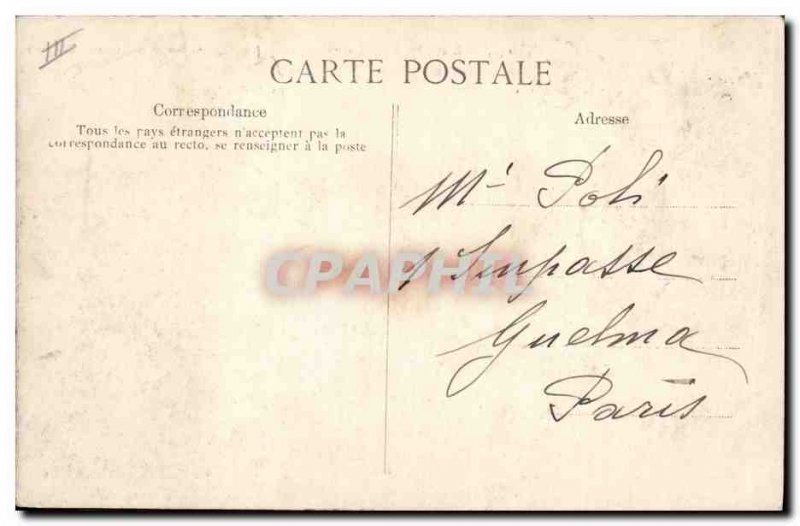 III
CARTE POSTALE
Correspondance
Tous les pays étrangers n'acceptent pas la
correspondance au recto, se renseigner à la poste
Adresse
Mr Poli
Impasse
Guelma
Paris
CPAPHIL